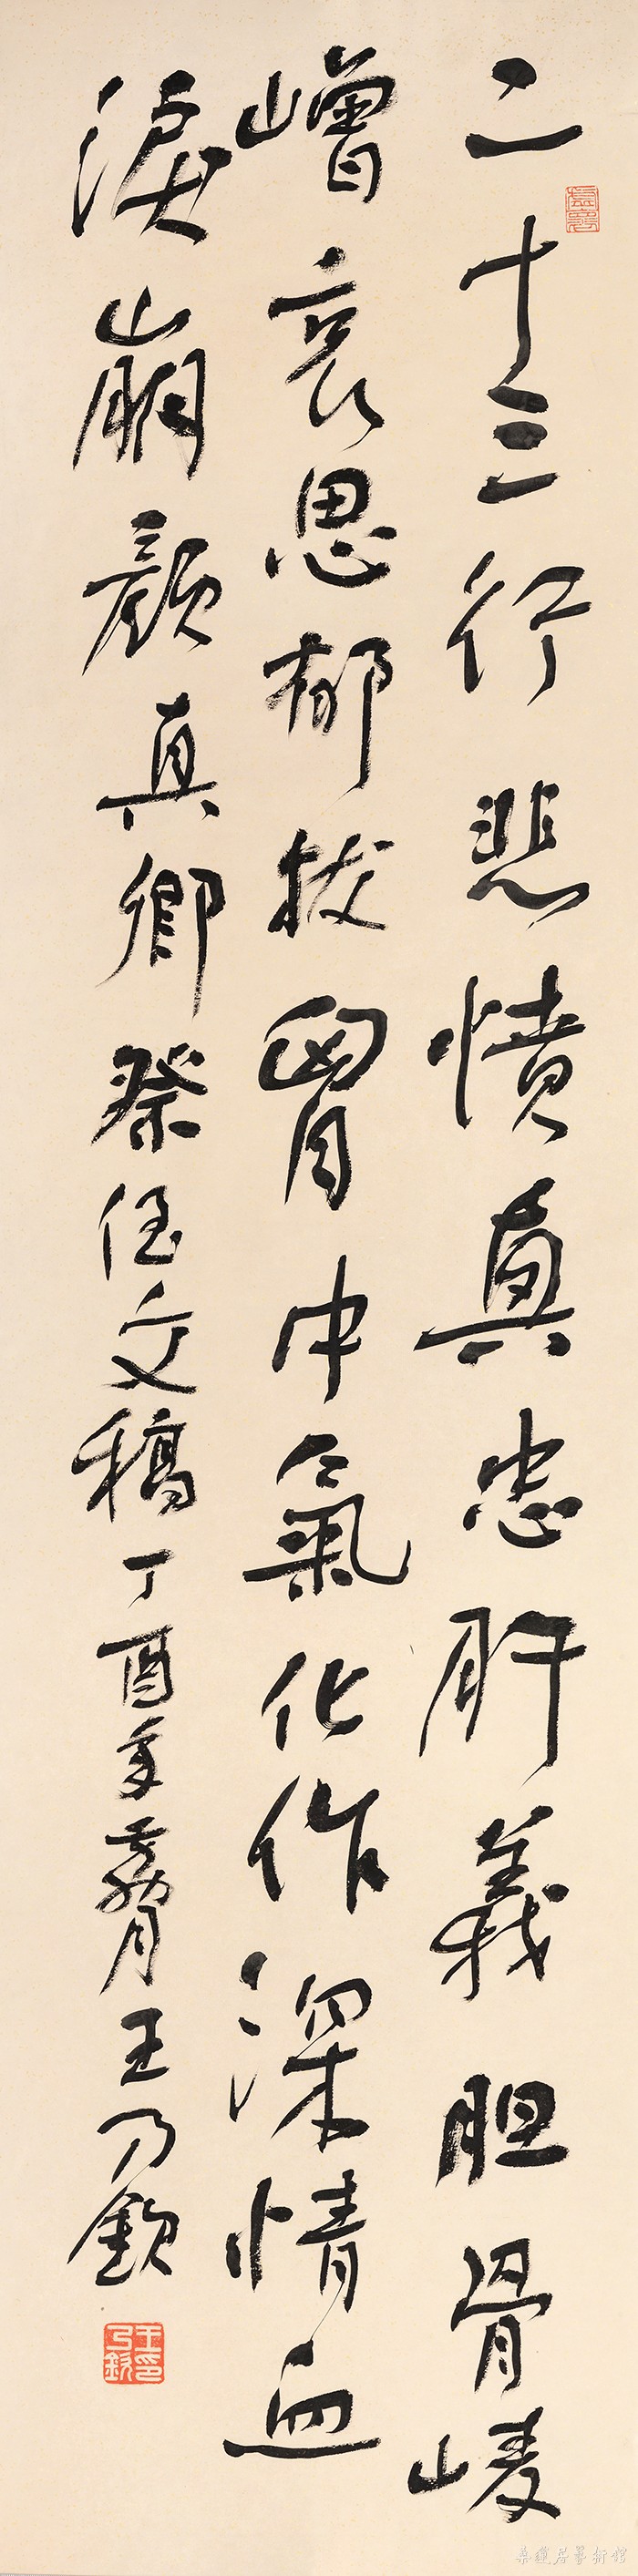 二十三行悲憤真忠肝義胆骨崚
嶒哀思郁拔胷中氣化作深情血
淚崩顏真卿祭侄文稿丁酉年王乃欽
王乃欽印
桑蓮居藝術館